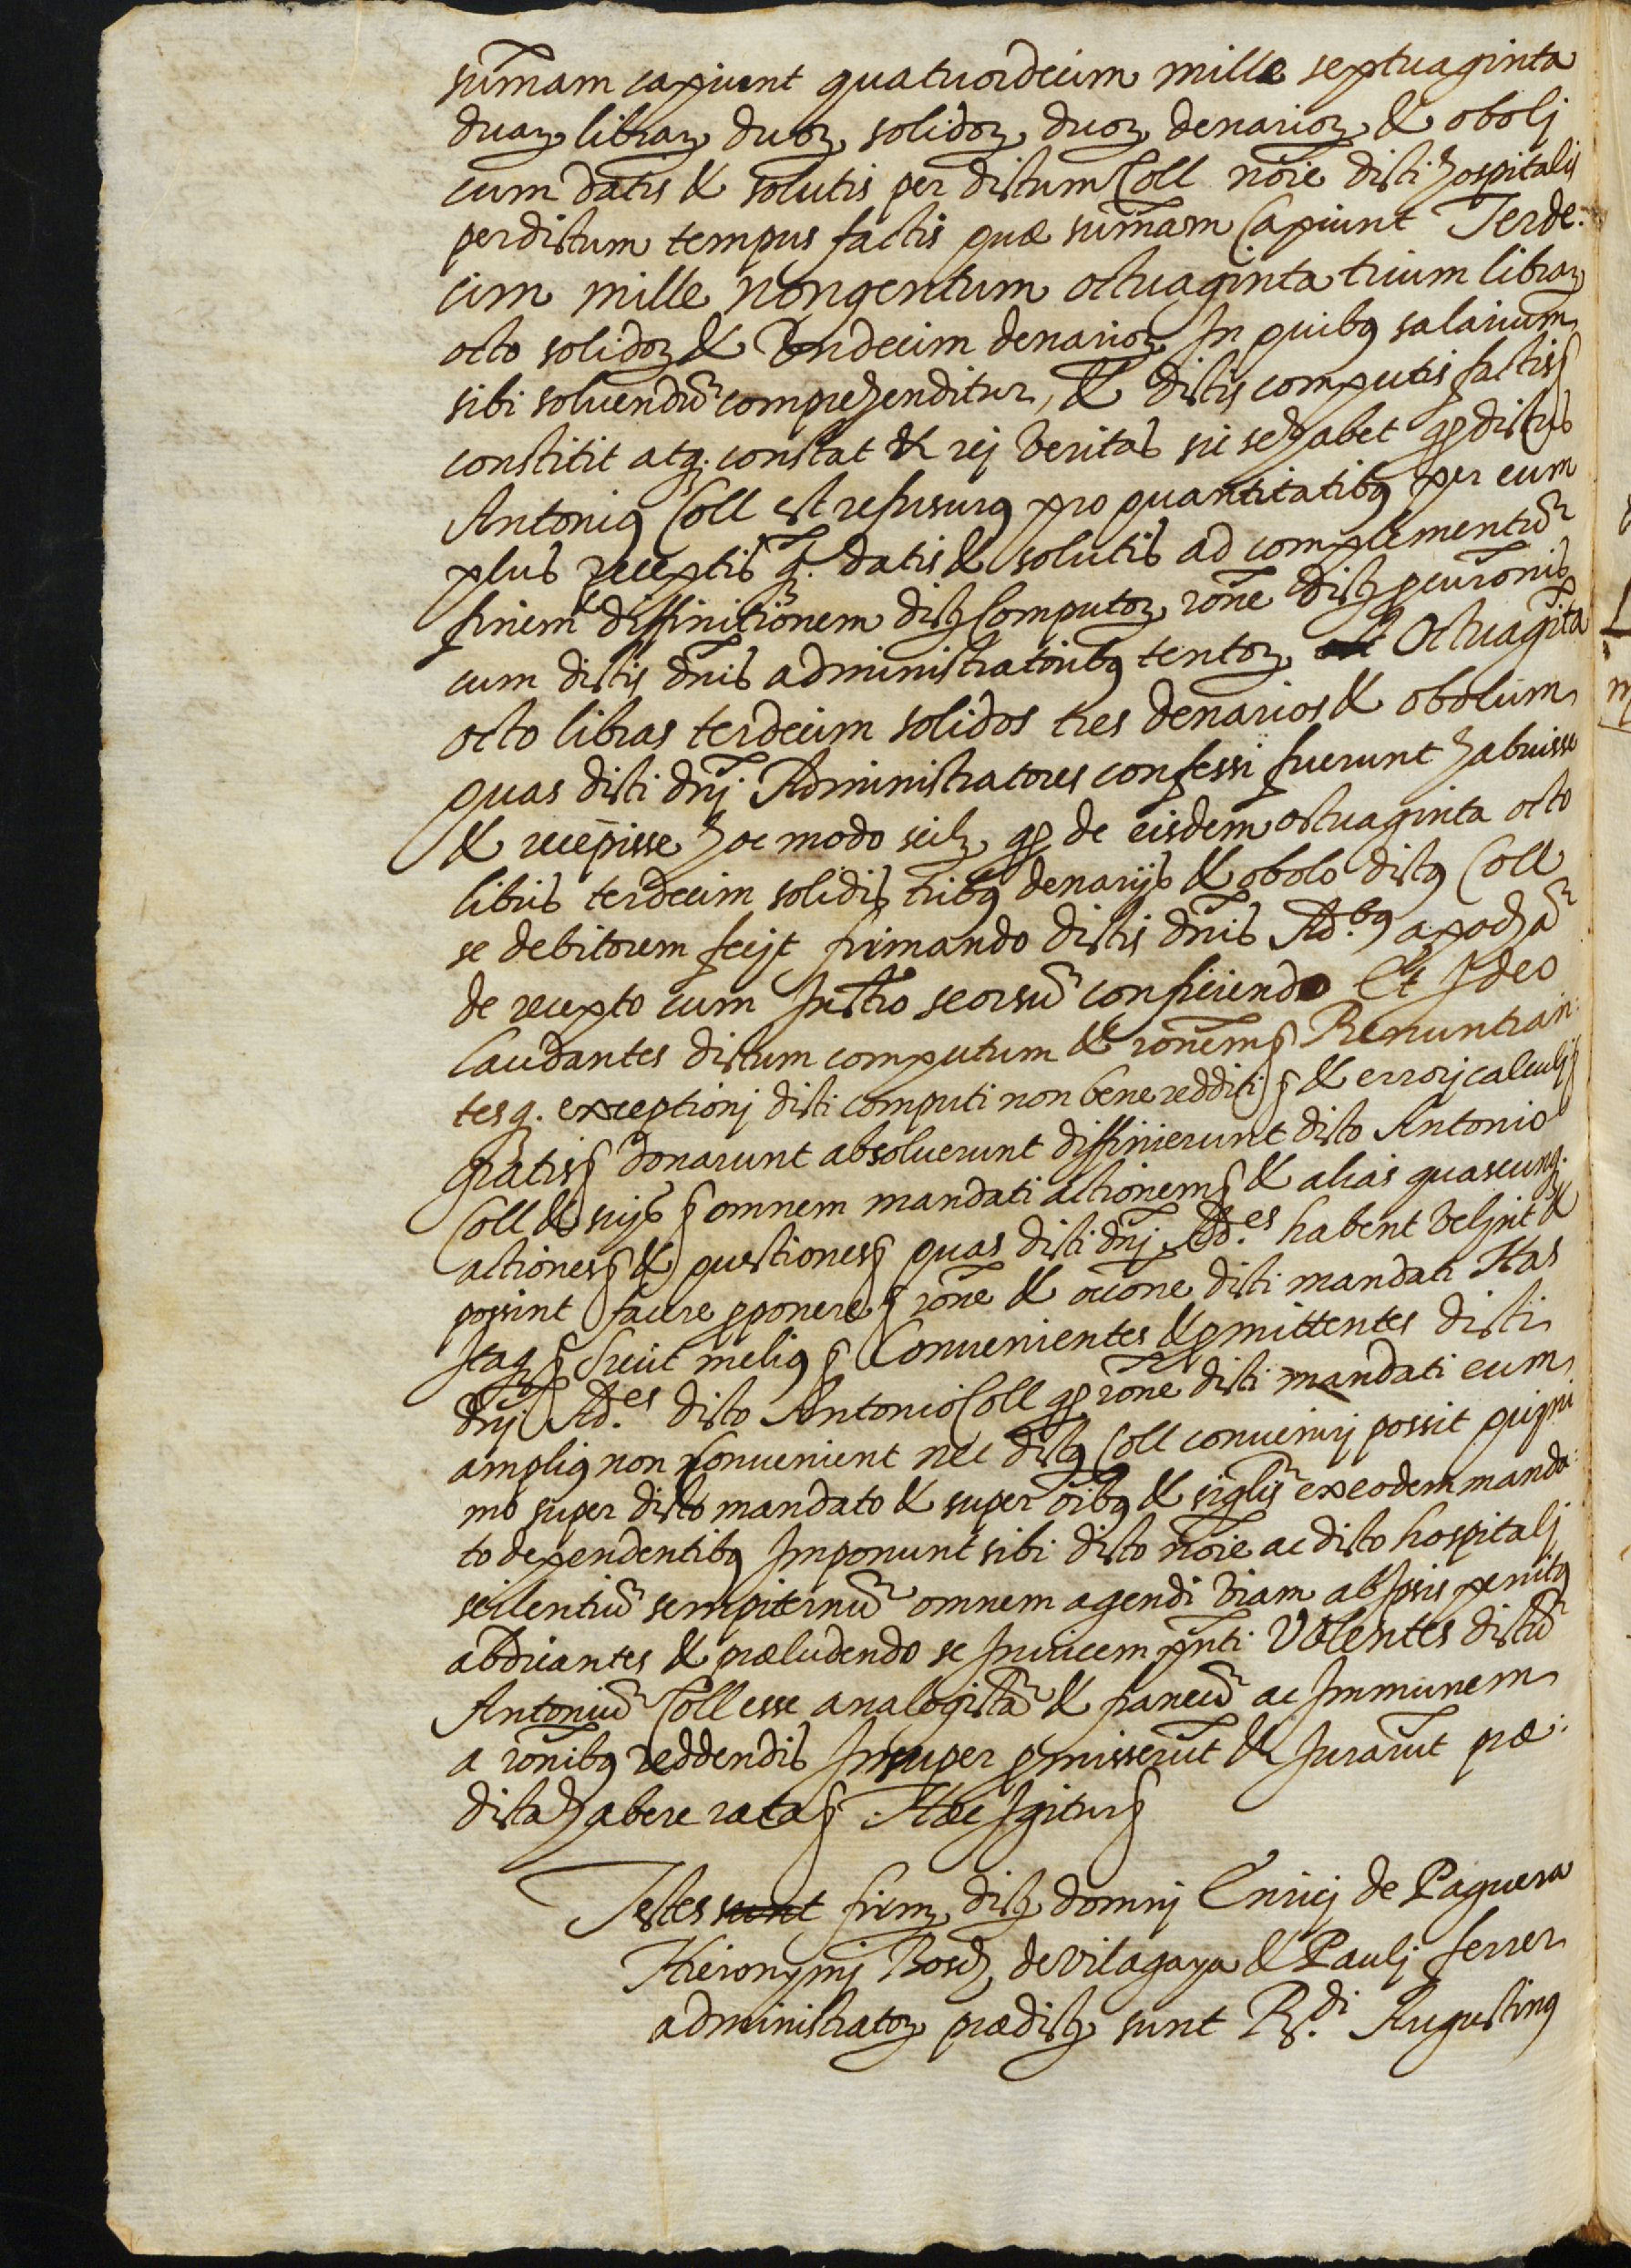 sum̃am capiunt quatuordecim mille septuaginta
duaꝝ libraꝝ duoꝝ solidoꝝ duoꝝ denarioꝝ & obolj
cum datis & solutis per dictum Coll nõie dicti hospitalis
per dictum tempus factis quæ sum̃am Capiunt Terde:
cim mille nongentum octuaginta trium libraꝝ
octo solidoꝝ & Vndecim denarioꝝ In quibꝰ salarium
sibi soluendũ comprehenditur, & dictis computis factis§
constitit atq; constat & rej veritas sic se habet ꝙ dictus
Antoniꝰ Coll est refusurꝰ pro quantitatibꝰ per eum
plus receptis q̃; datis & solutis ad complementũ
finem & diffinitionem dictꝝ Computoꝝ rõne dictꝝ ꝓcurõnis
cum dictis dñis administratoribꝰ tentoꝝ Octuagĩta
octo libras terdecim solidos tres denarios & obolum
quas dicti dñj Administratores confessi fuerunt habuisse
& recepisse hoc modo scilꝫ ꝙ de eisdem octuaginta octo
libris terdecim solidis tribꝰ denarijs & obolo dictꝰ Coll
se debitorem fecjt firmando dictis dñis Ad.bꝰ apochã
de recepto cum Instr̃o seorsũ conficiendo Et Ideo
Laudantes dictum computum & rõnem§ Renuntian:
tesq; exceptionj dicti computi non bene redditi§ & errorj calculj§
gratis§ donarunt absoluerunt diffinierunt dicto Antonio
Coll & suis § omnem mandati actionem§ & alias quascunq;
actiones§ & questiones§ quas dicti dñj Ad.es habent veljnt &
possint facere ꝓponere§ rõne & occõne dicti mandati Has
Itaq;§ Sicut meliꝰ§ Conuenientes & ꝓmittentes dicti
dñj Ad.es dicto Antonio Coll ꝙ rõne dicti mandati eum
ampliꝰ non Conuenient nec dictꝰ Coll conuenirj possit quini
mo super dicto mandato & super õibꝰ & siglĩs ex eodem manda:
to dependentibꝰ Imponunt sibi dicto nõie ac dicto hospitalj
scilentiũ sempiternũ omnem agendi viam ab Ipsis penitꝰ
abdicantes & præludendo se Inuicem pñti Volentes dictũ
Antoniũ Coll esse analogistã & francũ ac Immunem
a rõnibꝰ reddendis Insuper ꝓmisserũt & Jurarũt præ:
dicta habere rata§ Hæc Igitur§
Testes sunt firmꝝ dictꝝ domnj Enricj de Paguera
Hieronymj Bosch de vilagaya & Paulj ferrer
administratoꝝ prædictꝝ sunt R.di Augustinꝰ